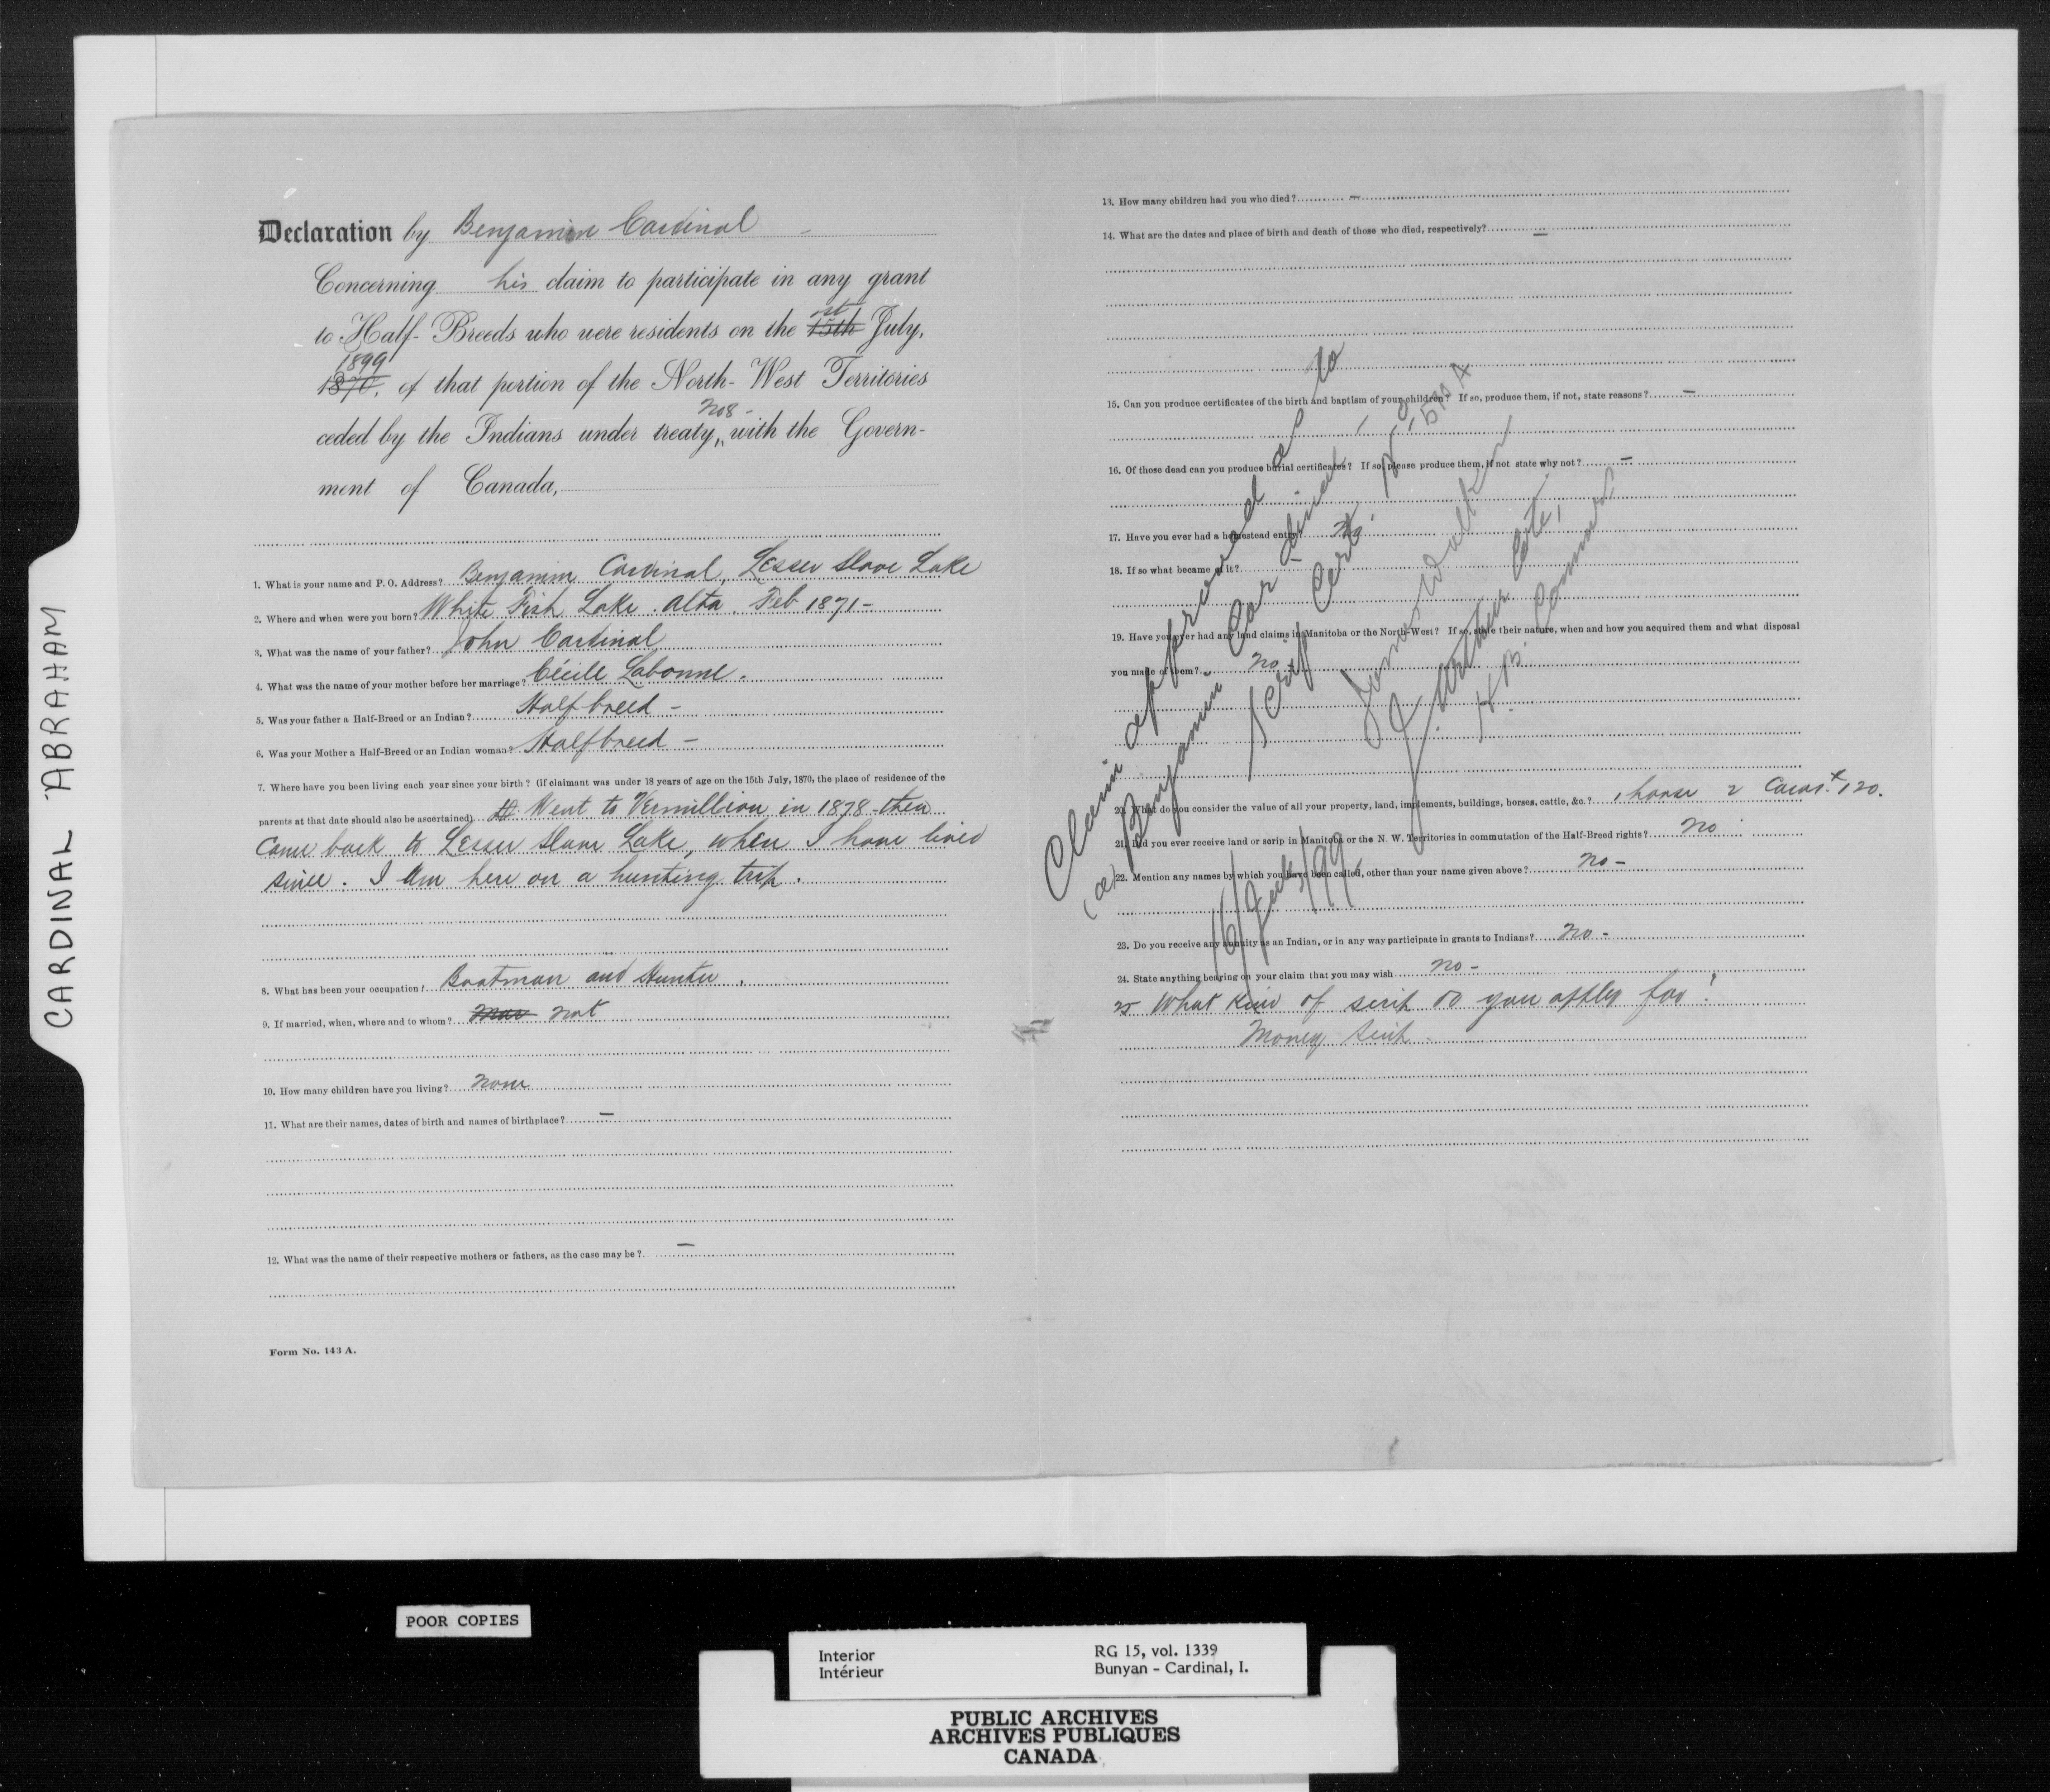 CARDINAL ABRAHAM
Declaration by Benjamin Cardinal
Concerning his claim to participate in any grant
to Half-Breeds who were residents on the 15th st July,
1870. 1899 of that portion of the North-West Territories
ceded by the Indians under treaty, No 8 - with the Govern-
ment of Canada,
1. What is your name and P. O. Address? Benjamin Cardinal, Lesser Slave Lake
2. Where and when were you born? White Fish Lake. Alta. Feb 1871 -
3. What was the name of your father? John Cardinal
4. What was the name of your mother before her marriage? Cécile Labonne.
5. Was your father a Half-Breed or an Indian? Half breed -
6. Was your Mother a Half-Breed or an Indian woman? Halfbreed -
7. Where have you been living each year since your birth? (if claimant was under 18 years of age on the 15th July, 1870, the place of residence of the
parents at that date should also be ascertained) Went to Vermillion in 1878 - then
Came back to Lesser Slave Lake, when I have lived
since. I am here on a hunting trip.
8. What has been your occupation? Boatman and Hunter.
9. If married, when, where and to whom? Mar not
10. How many children have you living? None
11. What are their names, dates of birth and names of birthplace? -
12. What was the name of their respective mothers or fathers, as the case may be? -
Form No. 143 A.
13. How many children had you who died? -
14. What are the dates and place of birth and death of those who died, respectively? -
15. Can you produce certificates of the birth and baptism of your children? If so, produce them, if not, state reasons? -
16. Of those dead can you produce burial certificates? If so, please produce them, if not state why not? -
17. Have you ever had a homestead entry? No
18. If so what became of it? -
19. Have you ever had any land claims in Manitoba or the North-West? If so, state their nature, when and how you acquired them and what disposal
you made of them? No -
20. What do you consider the value of all your property, land, implements, buildings, horses, cattle, &c.? 1 horse 2 Cows. 120.
21. Did you ever receive land or scrip in Manitoba or the N. W. Territories in commutation of the Half-Breed rights? No
22. Mention any names by which you have been called, other than your name given above? No -
23. Do you receive any annuity as an Indian, or in any way participate in grants to Indians? No -
24. State anything bearing on your claim that you may wish No -
25 What kind of scrip do you apply for?
Money scrip -
Claim approved as to
Benjamin Cardinal
Scrip Cert
James Walker
J. Arthur Coté,
H. B. Commrs
16/July/99
POOR COPIES
Interior
Intérieur
RG 15, vol. 1339
Bunyan - Cardinal, I.
PUBLIC ARCHIVES
ARCHIVES PUBLIQUES
CANADA